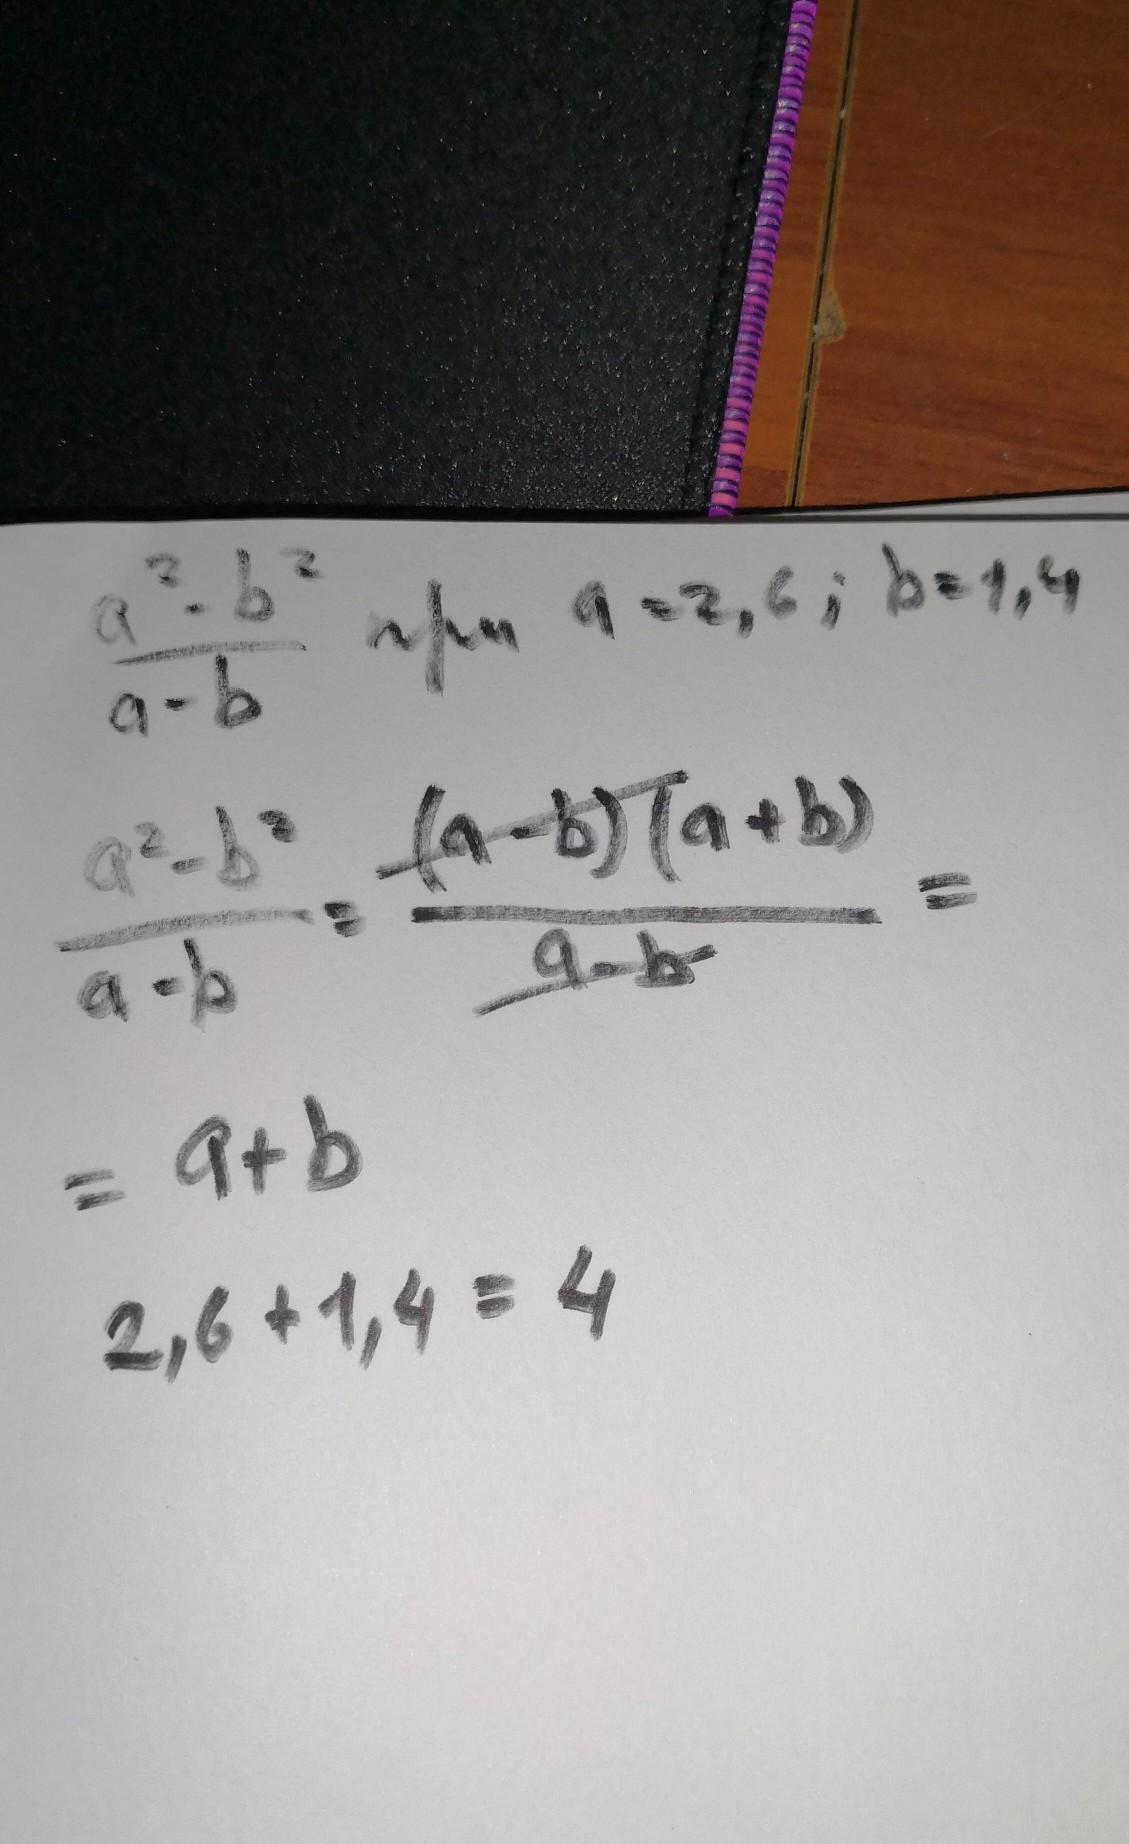 a²-b²
a-b при a=2,6; b=1,4
a²-b² = (a-b)(a+b) =
a-b a-b
= a+b
2,6+1,4=4